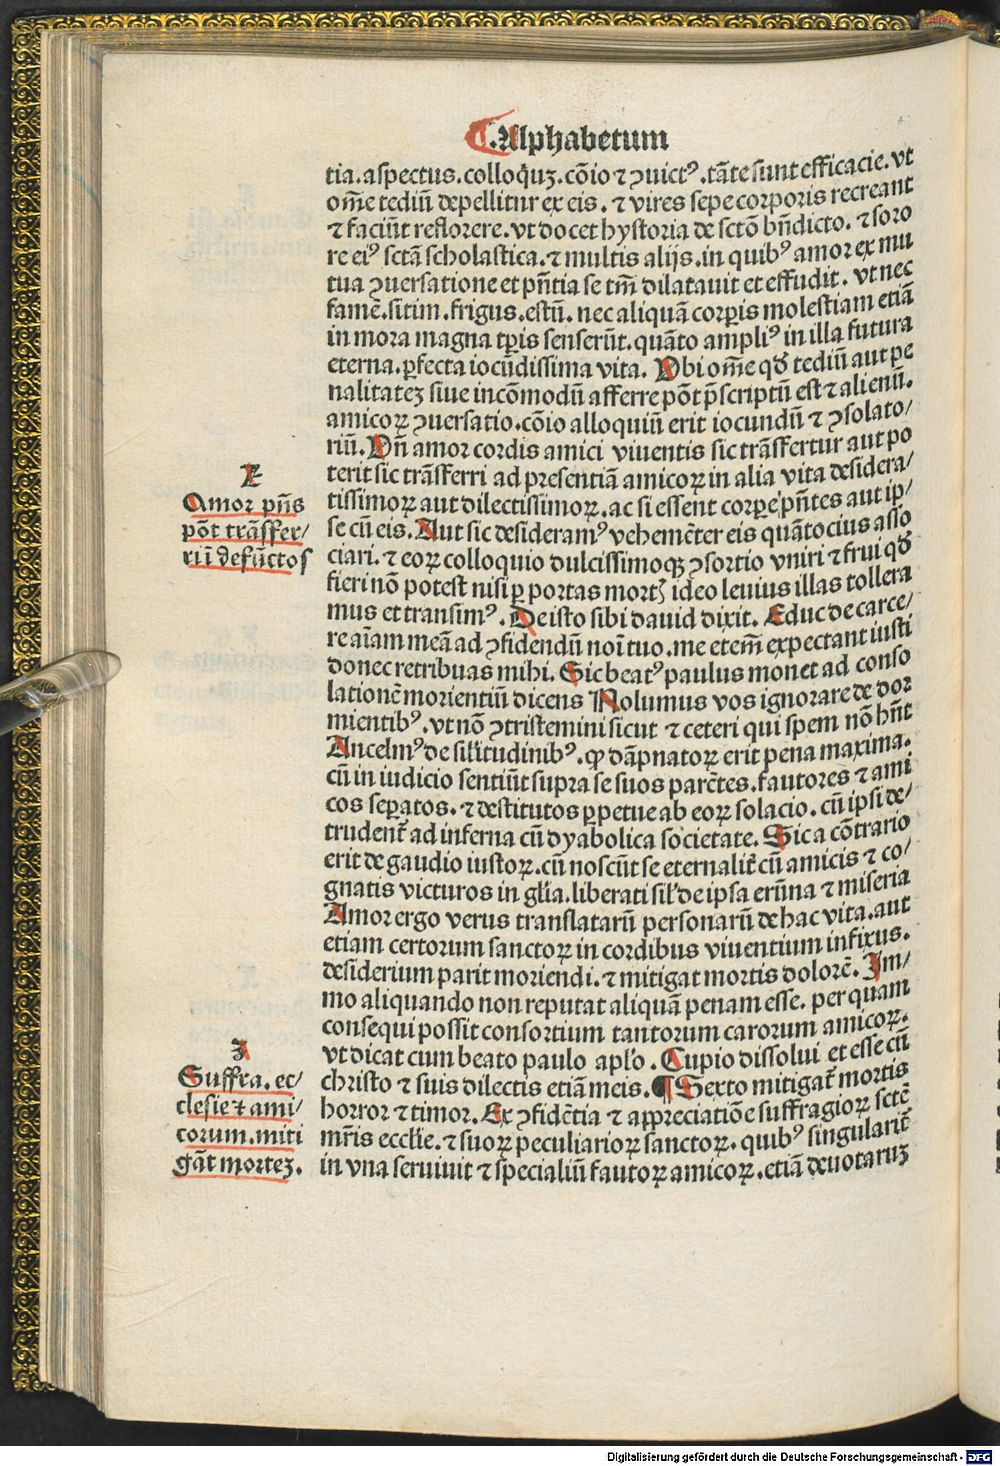 .Alphabetum
tia. aspectus. colloquꝫ. cōio ⁊ ꝯuictꝰ. tāte sunt efficacie. vt
om̄e tediū depellitur ex eis. ⁊ vires sepe corporis recreant
⁊ faciūt reflorere. vt docet hystoria de sctō bn̄dicto. ⁊ soro
re eiꝰ sctā scholastica. ⁊ multis alijs. in quibꝰ amor ex mu
tua ꝯuersatione et pn̄tia se tm̄ dilatauit et effudit. vt nec
famē. sitim. frigus. estū. nec aliquā corꝑis molestiam etiā
in mora magna tꝑis senserūt. quāto ampliꝰ in illa futura
eterna. ꝑfecta iocūdissima vita. Vbi om̄e qđ tediū aut pe
nalitateꝫ siue incōmodū afferre pōt p̄scriptū est ⁊ alienū.
amicoꝝ ꝯuersatio. cōio alloquiū erit iocundū ⁊ ꝯsolato/
riū. Vn̄ amor cordis amici viuentis sic trāsfertur aut po
terit sic trāsferri ad presentiā amicoꝝ in alia vita desidera/
tissimoꝝ aut dilectissimoꝝ. ac si essent corꝑe pn̄tes aut ip/
se cū eis. Aut sic desideramꝰ vehemēter eis quātocius asso
ciari. ⁊ eoꝝ colloquio dulcissimoqꝫ ꝯsortio vniri ⁊ frui qđ
fieri nō potest nisi ꝑ portas mortꝭ ideo leuius illas tollera
mus et transimꝰ. De isto sibi dauid dixit. Educ de carce/
re aīam meā ad ꝯfidendū noī tuo. me etem̄ expectant iusti
donec retribuas mihi. Sic beatꝰ paulus monet ad conso
lationē morientiū dicens Nolumus vos ignorare de dor
mientibꝰ. vt nō ꝯtristemini sicut ⁊ ceteri qui spem nō hn̄t
Ancelmꝰ de sil̄itudinibꝰ. ꝙ dāpnatoꝝ erit pena maxima.
cū in iudicio sentiūt supra se suos parētes. fautores ⁊ ami
cos seꝑatos. ⁊ destitutos ꝑpetue ab eoꝝ solacio. cū ipsi de/
trudent̄ ad inferna cū dyabolica societate. Sic a cōtrario
erit de gaudio iustoꝝ. cū noscūt se eternalit̄ cū amicis ⁊ co/
gnatis victuros in gl̄ia. liberati sil̄ de ipsa erūna ⁊ miseria
Amor ergo verus translatarū personarū de hac vita. aut
etiam certorum sanctoꝝ in cordibus viuentium infixus.
desiderium parit moriendi. ⁊ mitigat mortis dolorē. Im/
mo aliquando non reputat aliquā penam esse. per quam
consequi possit consortium tantorum carorum amicoꝝ.
vt dicat cum beato paulo apl̄o. Cupio dissolui et esse cū
christo ⁊ suis dilectis etiā meis. ¶ Sexto mitigat̄ mortis
horror ⁊ timor. Ex ꝯfidētia ⁊ appreciatiōe suffragioꝝ sctē
mr̄is eccl̄ie. ⁊ suoꝝ peculiarioꝝ sanctoꝝ. quibꝰ singularit̄
in vna seruiuit ⁊ specialiū fautoꝝ amicoꝝ. etiā deuotaruꝫ
Amor pn̄s
pōt trāsfer/
rīī defūctos
Suffra. ec/
clesie ⁊ ami/
corum. miti
gāt morteꝫ.
Digitalisierung gefördert durch die Deutsche Forschungsgemeinschaft - DFG